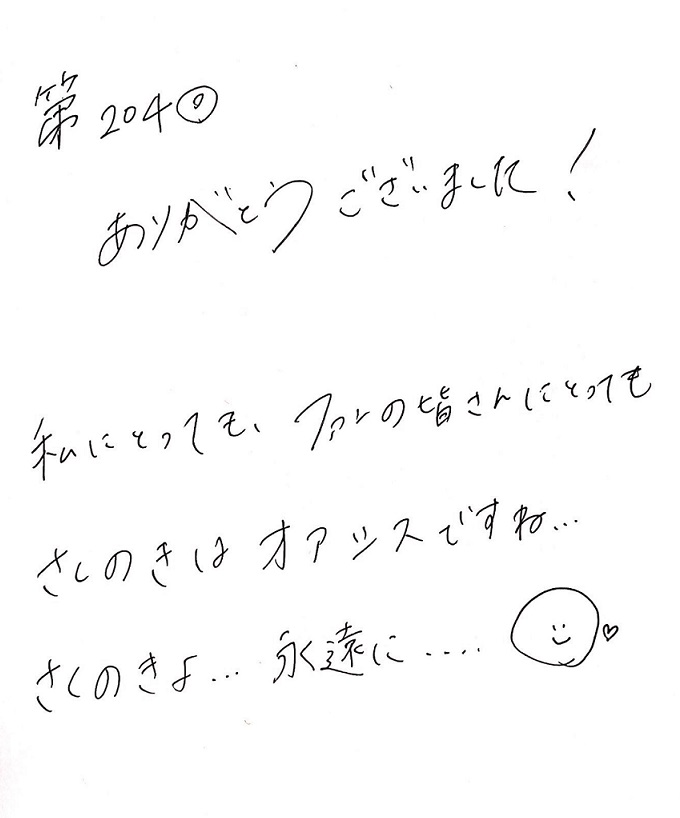 第204回
ありがとうございました！
私にとっても、ファンの皆さんにとっても
さくのきはオアシスですね...
さくのきよ... 永遠に....